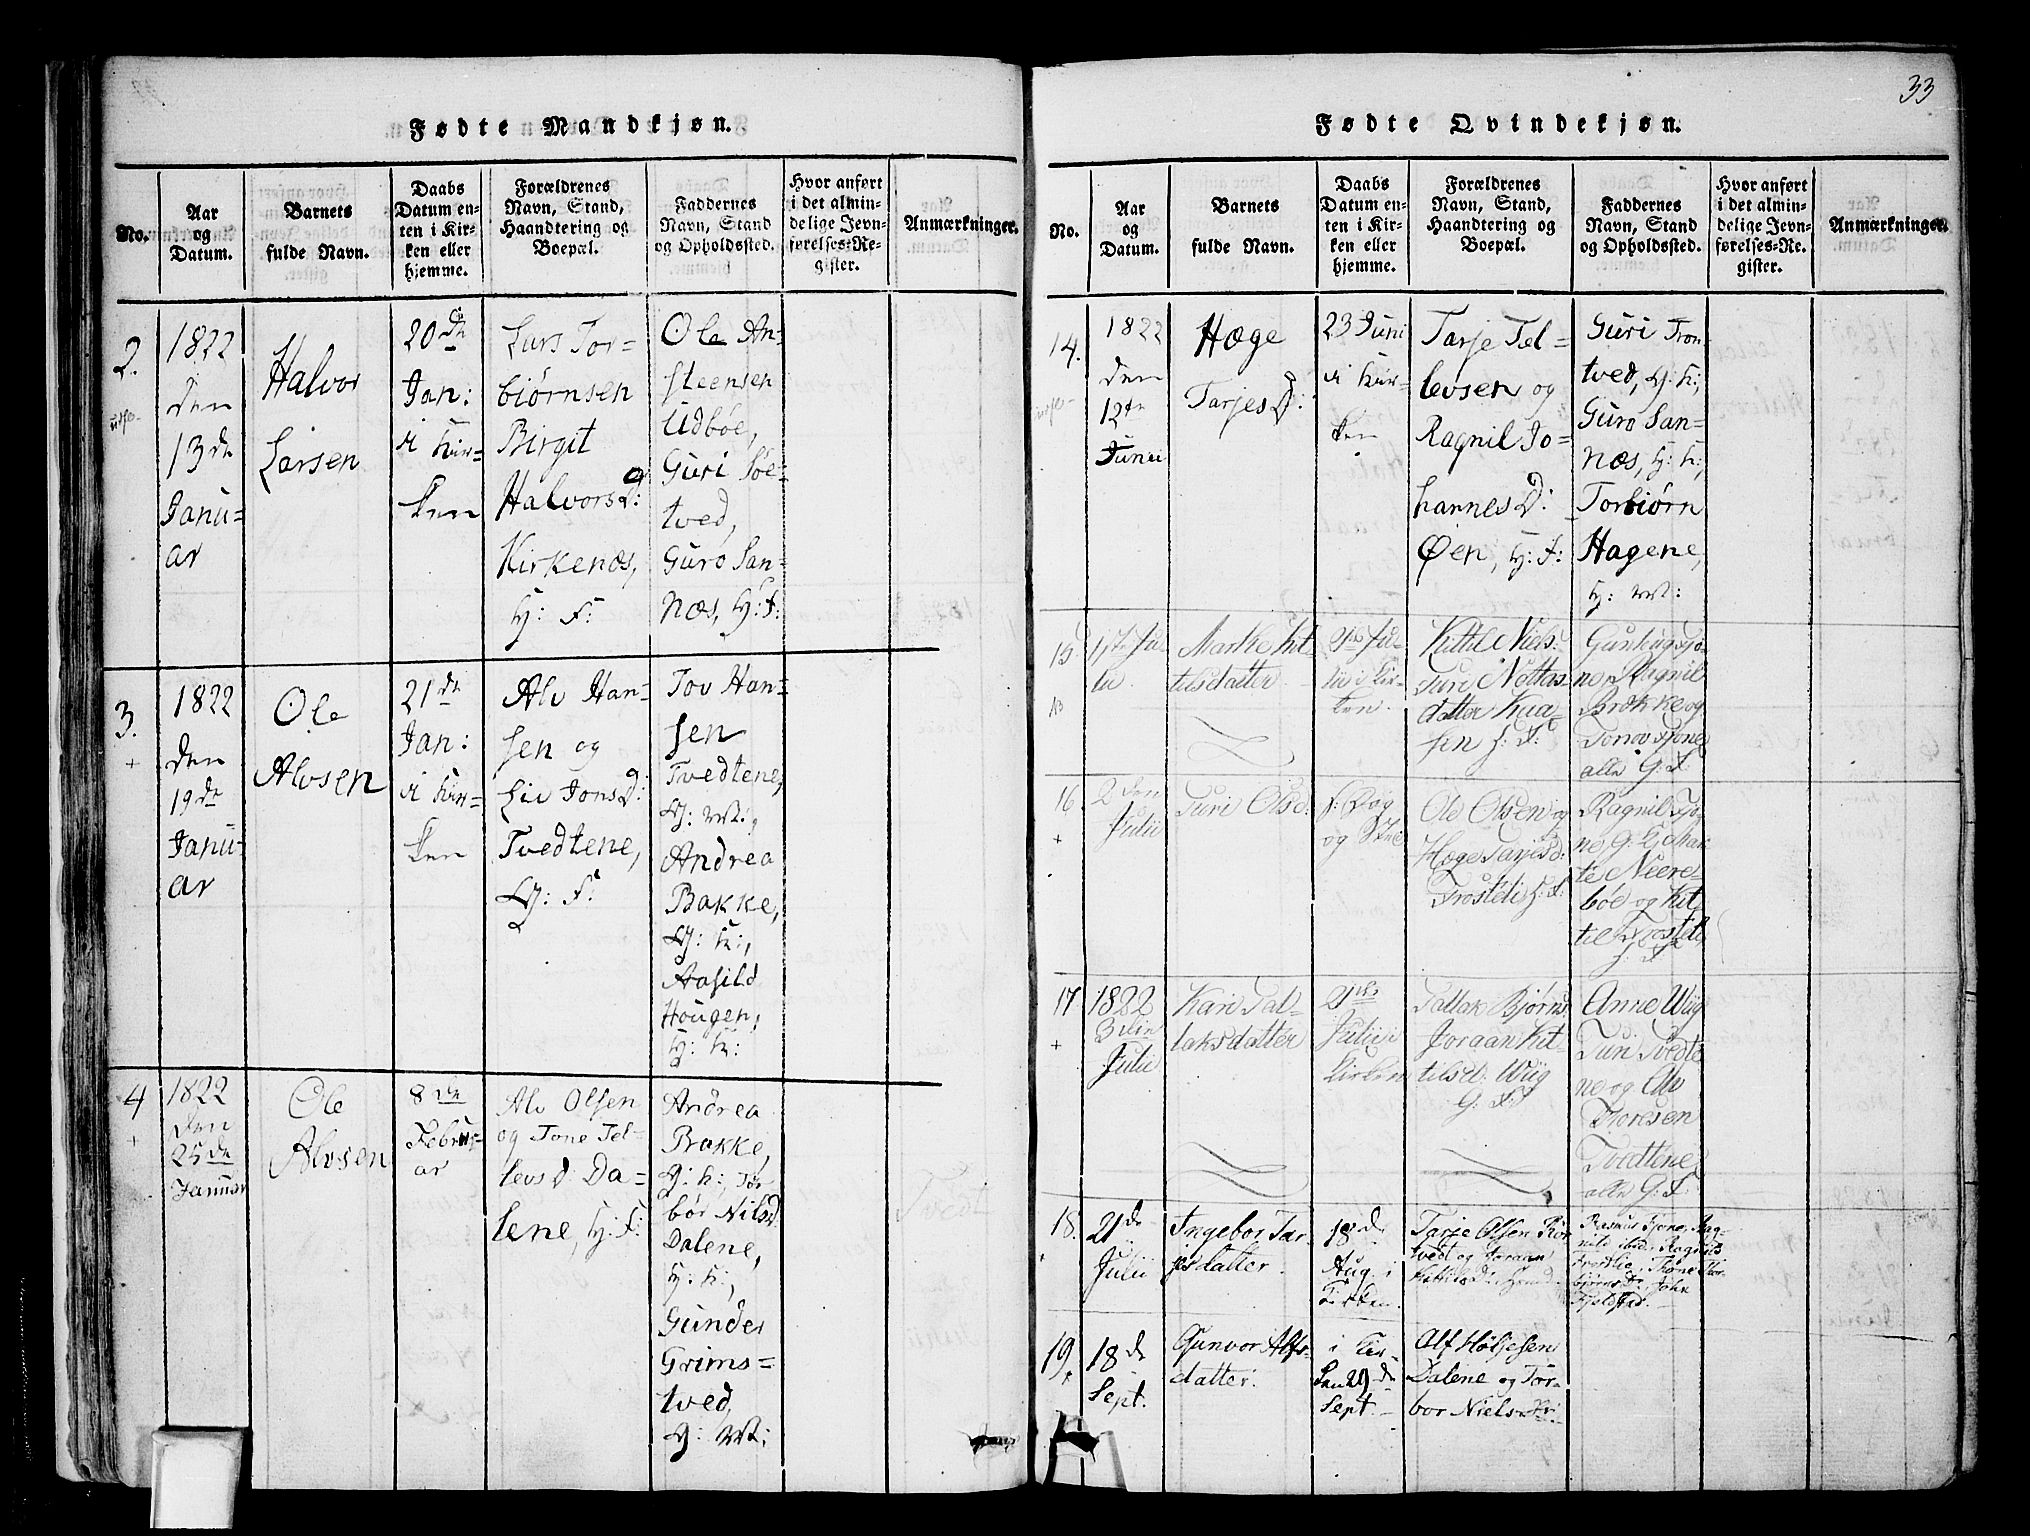 33
Fødte Mandkjøn.
No.
Aar
og
Datum.
Barnets
fulde Navn.
Daabs
Datum en-
ten i Kir-
ken eller
hjemme.
Forældrenes
Navn, Stand,
Haandtering og
Boepæl.
Faddernes
Navn, Stand
og Opholdssted.
Hvor anført
i det almin-
delige Jevn-
førelses-Re-
gister.
Anmærkninger.
2.
1822
den
13de
Janu-
ar
Halvor
Larsen
20de
Jan:
i Kir-
ken
Lars Tor-
biørnsen
Birgit
HalvorsD:
Kirkenæs,
H: F:
Ole An-
steensen
Udbøe,
Guri Søe-
tved,
Guro San-
næs, H: F:
3.
+
1822
den
19de
Janu-
ar
Ole
Alvsen
21de
Jan:
i Kir-
ken
Alv Han-
sen og
Liv JonsD:
Tvedtene,
H: F:
Tov Han-
sen
Tvedtene,
Andrea
Bakke,
Aasild
Hougen,
4
+
1822
den
25de
Januar
Ole
Alvsen
8de
Febru-
ar
Alv Olsen
og Tone Tel-
levsd Da-
lene, H: F:
Andrea
Bakke,
H: K:, Tor-
bór Nilsd
Dalene,
H: K:,
Gunder
Grims-
tved,
Fødte Qvindekjøn.
No.
Aar
og
Datum.
Barnets
fulde Navn.
Daabs
Datum en-
ten i Kir-
ken eller
hjemme.
Forældrenes
Navn, Stand,
Haandtering og
Boepæl.
Faddernes
Navn, Stand
og Opholdssted.
Hvor anført
i det almin-
delige Jevn-
førelses-Re-
gister.
Anmærkninger.
14.
1822
den
12te
Junii
Hæge
TarjesD:
23 Juni
i Kir-
ken
Tarje Tel-
levsen og
Ragnil Jo-
hannesD:
Øen, H: F:
Guri Tron-
tved, H: K:,
Guro San-
næs, H: K:,
Torbiørn
Hagene,
15
1ste Ju-
lii
Marthe Kit-
tilsdatter
Ju-
lii i Kir-
ken.
Kittil Niels:
Turi Nottos-
datter Kaa-
sen H: F:
Ragnil
Brøkke og
Tone
alle G: F
16
+
2den
Julii
Turi Olsd:
Ole Olsen og
Hæge Tarjesd:
Trosteli H: F:
Ragnil
Niere-
bøe og Kit-
til Trosteli
17
+
1822
3die
Julii
Kari Tal-
laksdatter
Julii i
Kirken
Tallak Bjørns.
Joraan Kit-
tilsd: Wiig
G: F:
Anne Wiig
Turi Tvedte-
ne og Alv
Thoresen
Tvedtene
alle G: F
18.
21de
Julii
Ingebor Tar-
jesdatter.
18de
Aug. i
Kirken.
Tarje Olsen
tvedt og Joraan
KittilsD:
Rasmus Tjone, Rag-
nild ibid., Ragnild
Trostlie, Thone Thor-
bjørnsDr., John
19.
+
18de
Sept.
Gunvor Alfs-
datter.
i Kir-
ken 29de
Sept.
Alf Höljesen
Dalene og Tor-
bor Niels Dr: